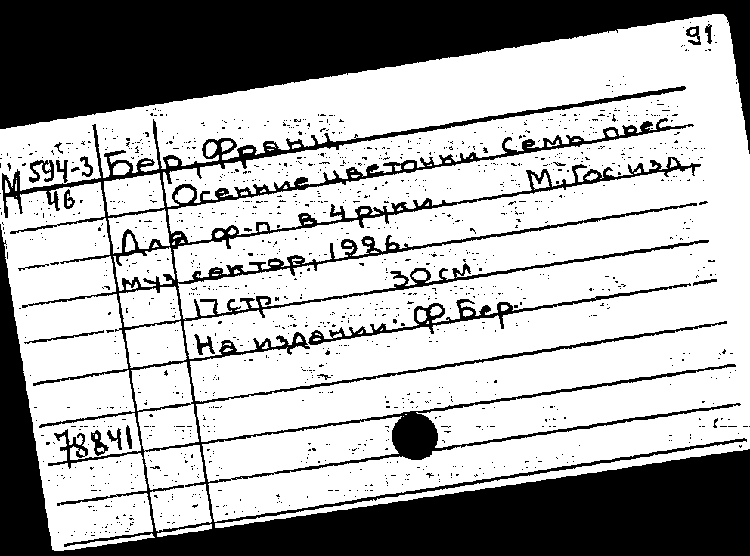 91
М 594-3
46
Бер, Франц
Осенние цветочки. Семь пьес
Для ф-п. в 4 руки. М., Гос. изд.,
муз сектор, 1926.
17 стр. 30 см.
На издании: Ф. Бер.
78841